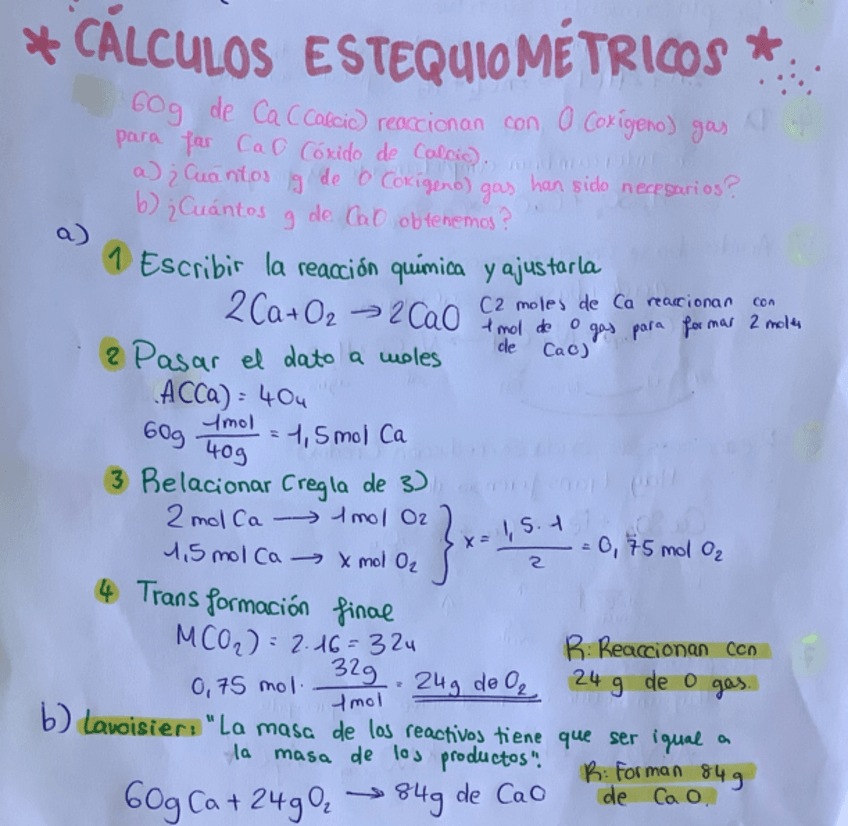 * CÁLCULOS ESTEQUIOMÉTRICOS *
60g de Ca (Calcio) reaccionan con O (oxígeno) gas
para far CaO (óxido de Calcio).
a) ¿Cuántos g de O (oxígeno) gas han sido necesarios?
b) ¿Cuántos g de CaO obtenemos?
a)
1 Escribir la reacción química y ajustarla
2Ca+O₂ → 2CaO (2 moles de Ca reaccionan con
1 mol de O gas para formar 2 moles
de CaO)
2 Pasar el dato a moles
A(Ca) = 40u
60g 1mol/40g = 1,5 mol Ca
3 Relacionar (regla de 3)
2 mol Ca → 1 mol O₂
1,5 mol Ca → x mol O₂ } x = 1,5·1/2 = 0,75 mol O₂
4 Transformación final
M(O₂) = 2·16 = 32u
0,75 mol · 32g/1mol = 24g de O₂
R: Reaccionan con
24 g de O gas.
b) Lavoisier: "La masa de los reactivos tiene que ser igual a
la masa de los productos".
60g Ca + 24g O₂ → 84g de CaO
R: Forman 84g
de CaO.